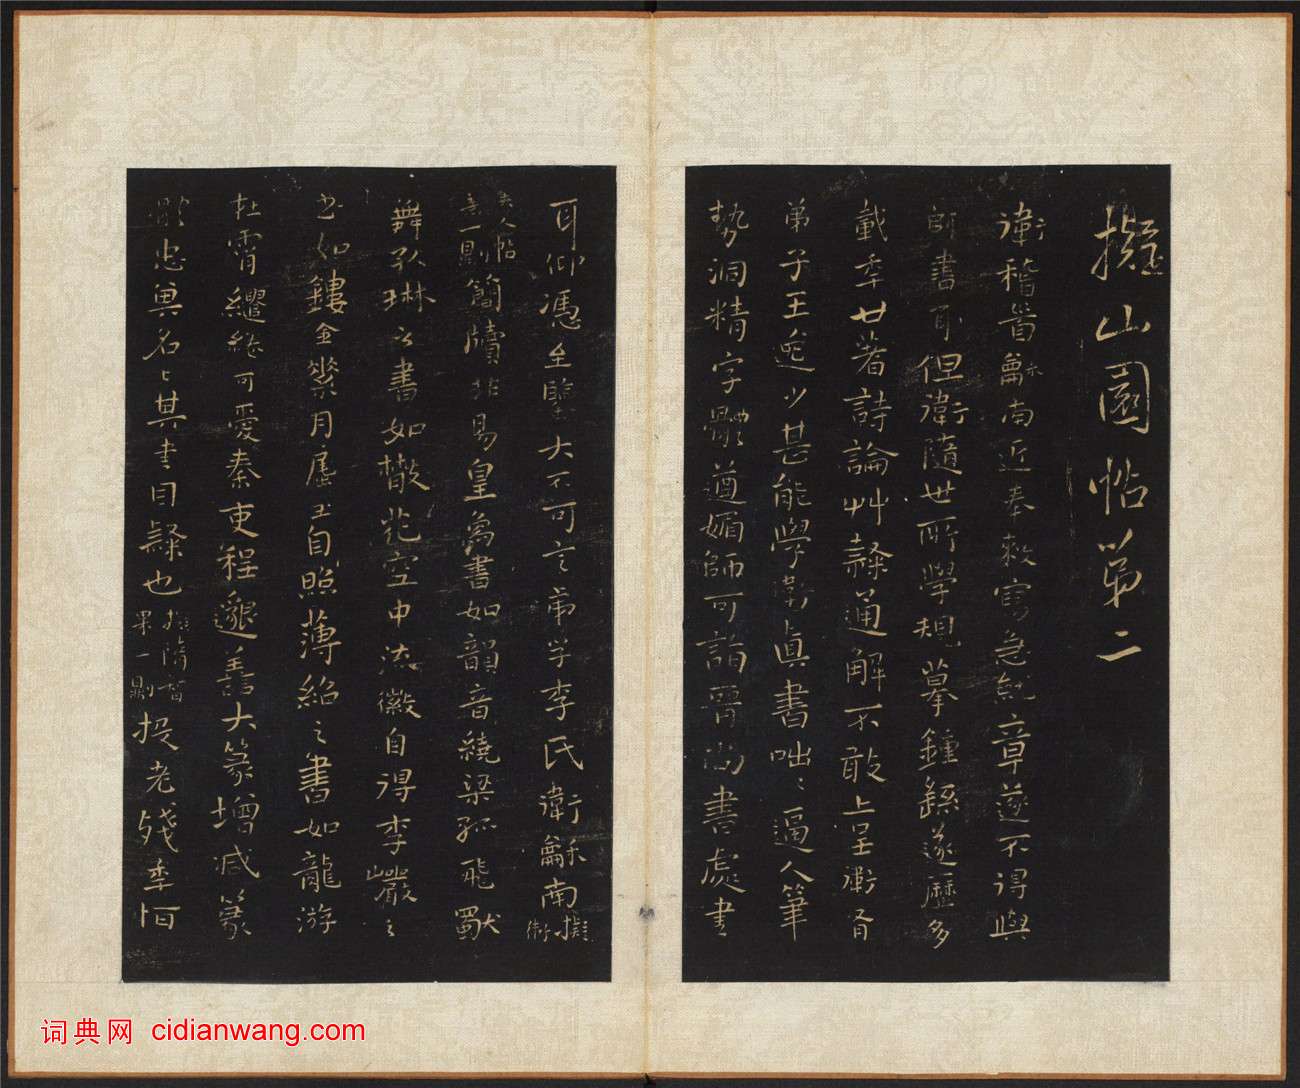 擬山園帖第二
衛稽首龢南近奉敕寫急就章遂不得與
師書耳但衛隨世所學規摹鍾繇遂歷多
載年廿著詩論艸隸通解不敢上呈衛有
弟子王逸少甚能學衛真書咄咄逼人筆
勢洞精字體遒媚師可詣晉尚書處書
耳仰憑至鑒大不可言弟子李氏衛龢南擬衛
夫人帖一則簡牘 易皇象書如韻音繞梁孤飛獸
舞孔琳之書如散花空中流徽自得李巖之
書如鏤金素月屈玉自照薄紹之書如龍游
在霄繾綣可愛秦吏程邈善大篆增減篆
名其書曰隸也擬隋智果一則投老殘年恒
词典网 cidianwang.com